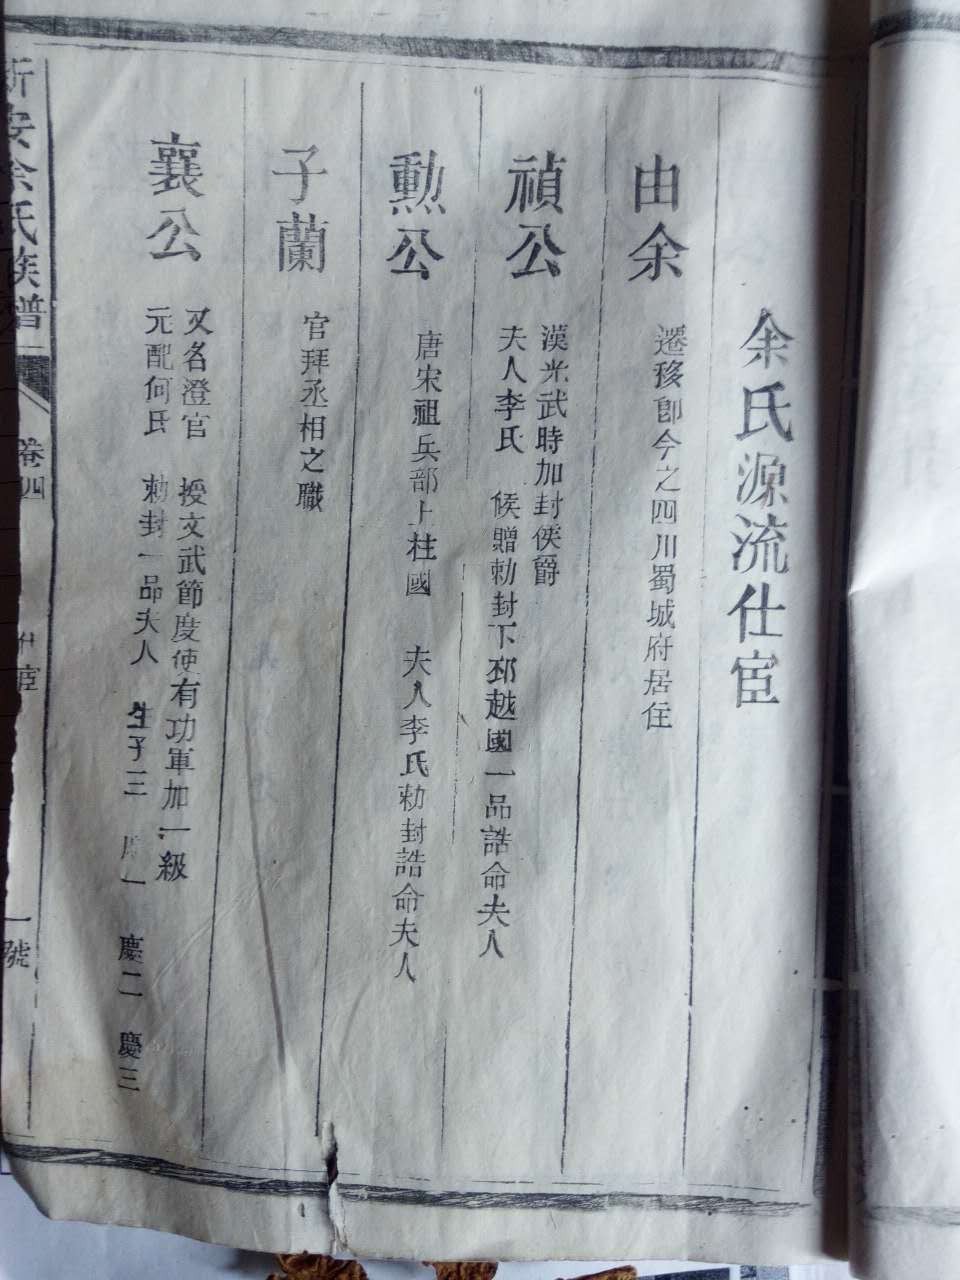 余氏源流仕宦
由余
遷移即今之四川蜀城府居住
禎公
漢光武時加封侯爵
夫人李氏 候贈勅封下邳越國一品誥命夫人
勲公
唐宋祖兵部上柱國 夫人李氏勅封誥命夫人
子蘭
官拜丞相之職
襄公
又名澄官 授文武節度使有功軍加一級
元配何氏 勅封一品夫人 生子三 一 慶二 慶三
新安余氏族譜
卷四
仕宦
一號